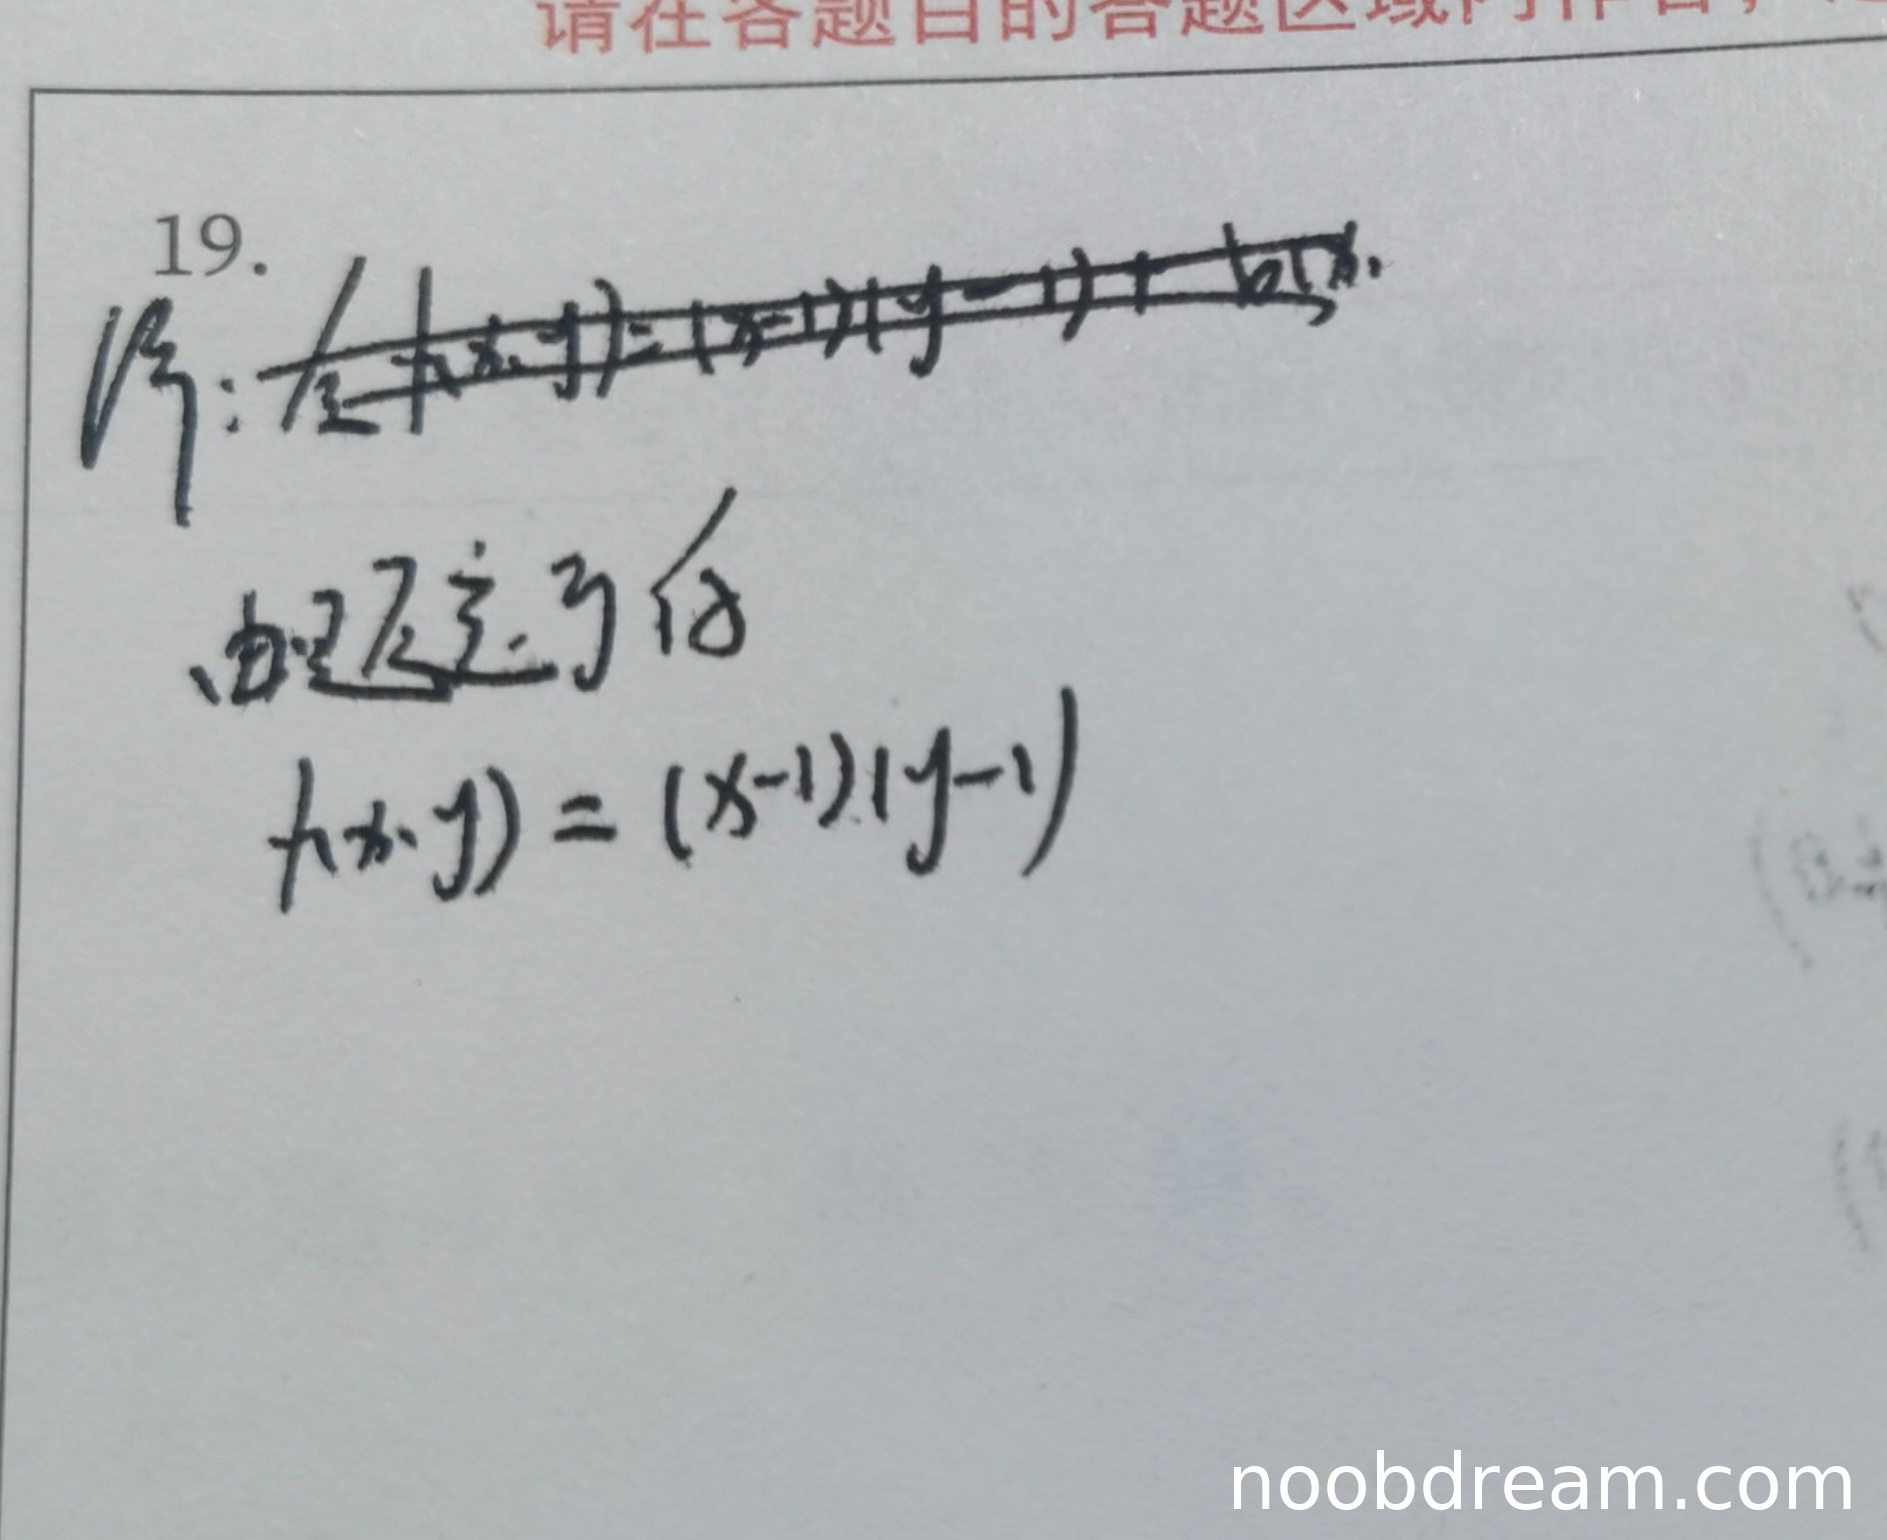 请在各题目的答题区域内作答，
19.
解:
f(x,y)=(x-1)(y-1)+
由题意可得
f(x,y) = (x-1)(y-1)
noobdream.com